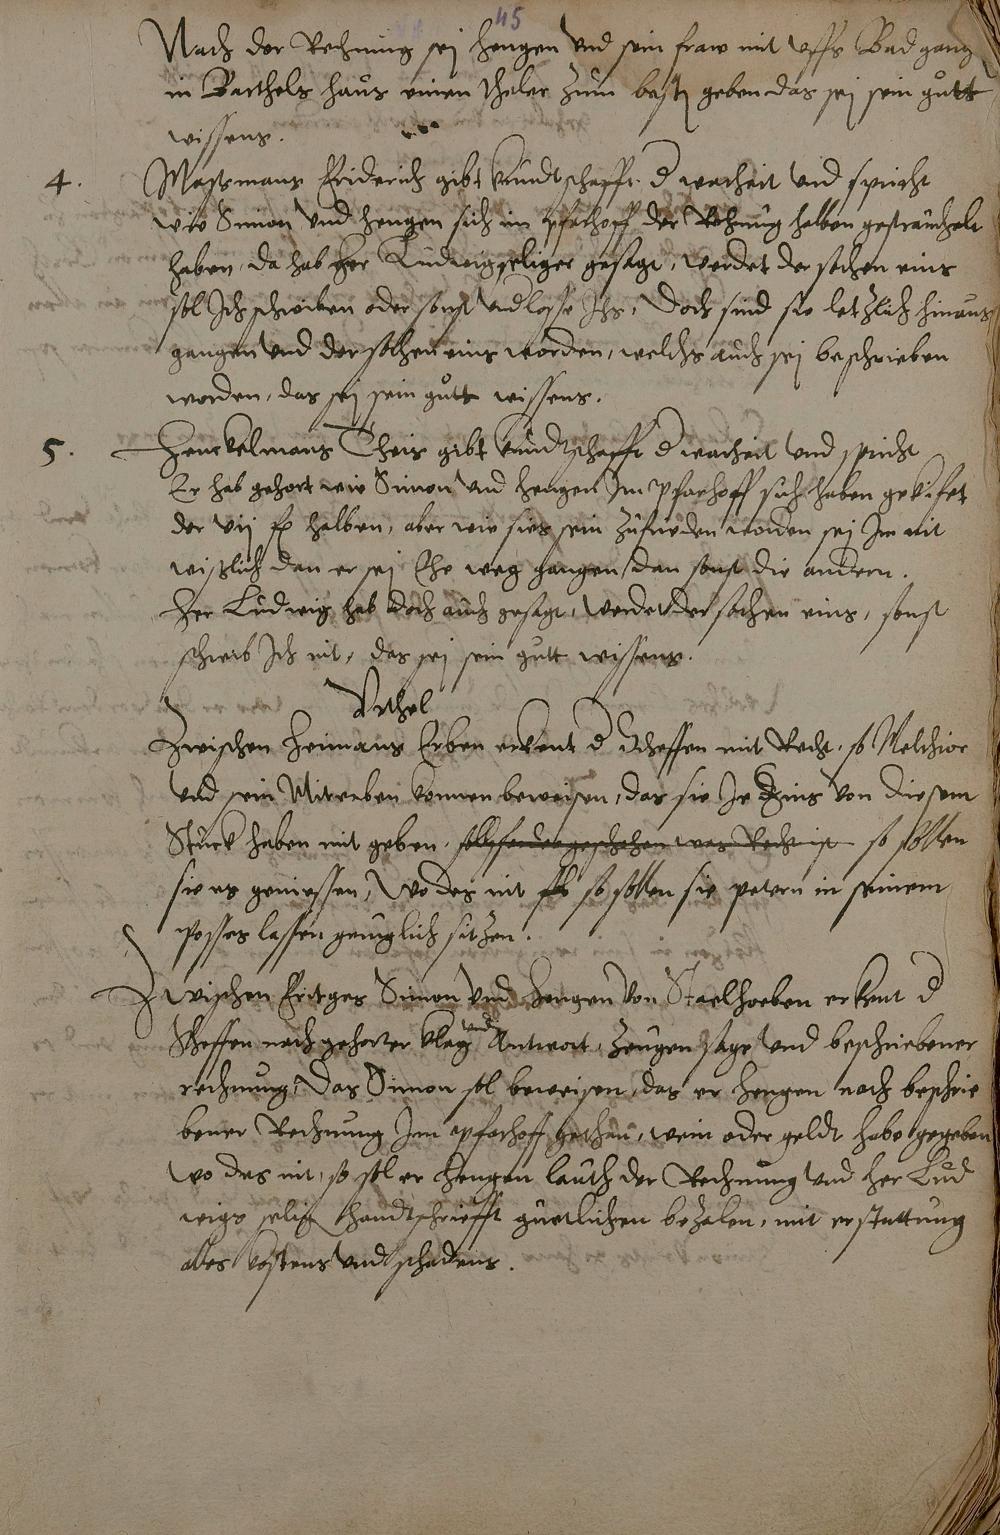 45
Nach der Rechnung sej Hengen vnd sein fraw mit vffs Bad gang
in Barthels haus einen thaler zum besten geben das sej sein gutt
wissens.
4. Massmans Friderich gibt kundtschafft d warheit vnd spricht
wie Simon vnd Hengen sich im pfarhoff der Rechnung halben gestrauchelt
haben, da hab her Ludwig seliger gesagt, werdet der sachen eins
sol Ich schreiben oder sonst vnderlasse Ichs, Doch sind sie letzlich hinaus
gangen vnd der sachen eins worden, welchs auch sej beschrieben
worden, das sej sein gutt wissens.
5. Henckelmans Theis gibt kundtschafft d warheit vnd spricht
Er hab gehort wie Simon vnd Hengen Im pfarhoff sich haben gekifet
der vij fl halben, aber wie sies sein zufrieden worden sej Im nit
wisslich dan er sej Ehe weg gangen dan sonst die andern.
Her Ludwig hab doch auch gesagt, werdet der sachen eins, sonst
schreib Ich nit, das sej sein gutt wissens.
Vrthel
Zwischen Heimans Erben erkent d Scheffen mit Recht, so Melchior
vnd sein Miterben konnen beweisen, das sie Ir Zins von diesem
Stuck haben mit geben, geschehen was Recht ist so sollen
sie es geniessen, Wo des nit so sollen sie petern in seinem
Posses lassen geruglich sitzen.
Zwischen Fritges Simon vnd Hengen von Staelhoeben erkent d
Scheffen nach gehorter klag vnd Antwort, Zeugen sage vnd beschriebener
rechnung, Das Simon sol beweisen, das er Hengen nach beschrie
bener Rechnung Im pfarhoff gethan, wein oder geldt habe gegeben
Wo des nit, so sol er Hengen lauth der Rechnung vnd her Lud
wigs selig handtschriefft guetlichen bezalen, mit erstattung
alles kostens vnd schadens.